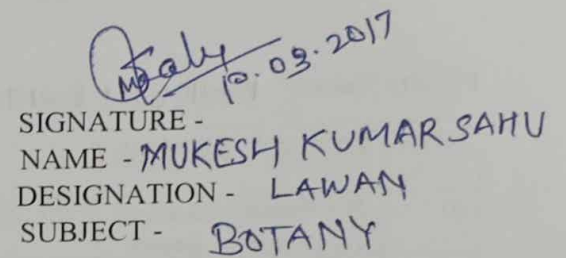 10.03.2017
SIGNATURE -
NAME - MUKESH KUMAR SAHU
DESIGNATION - LAWAN
SUBJECT - BOTANY